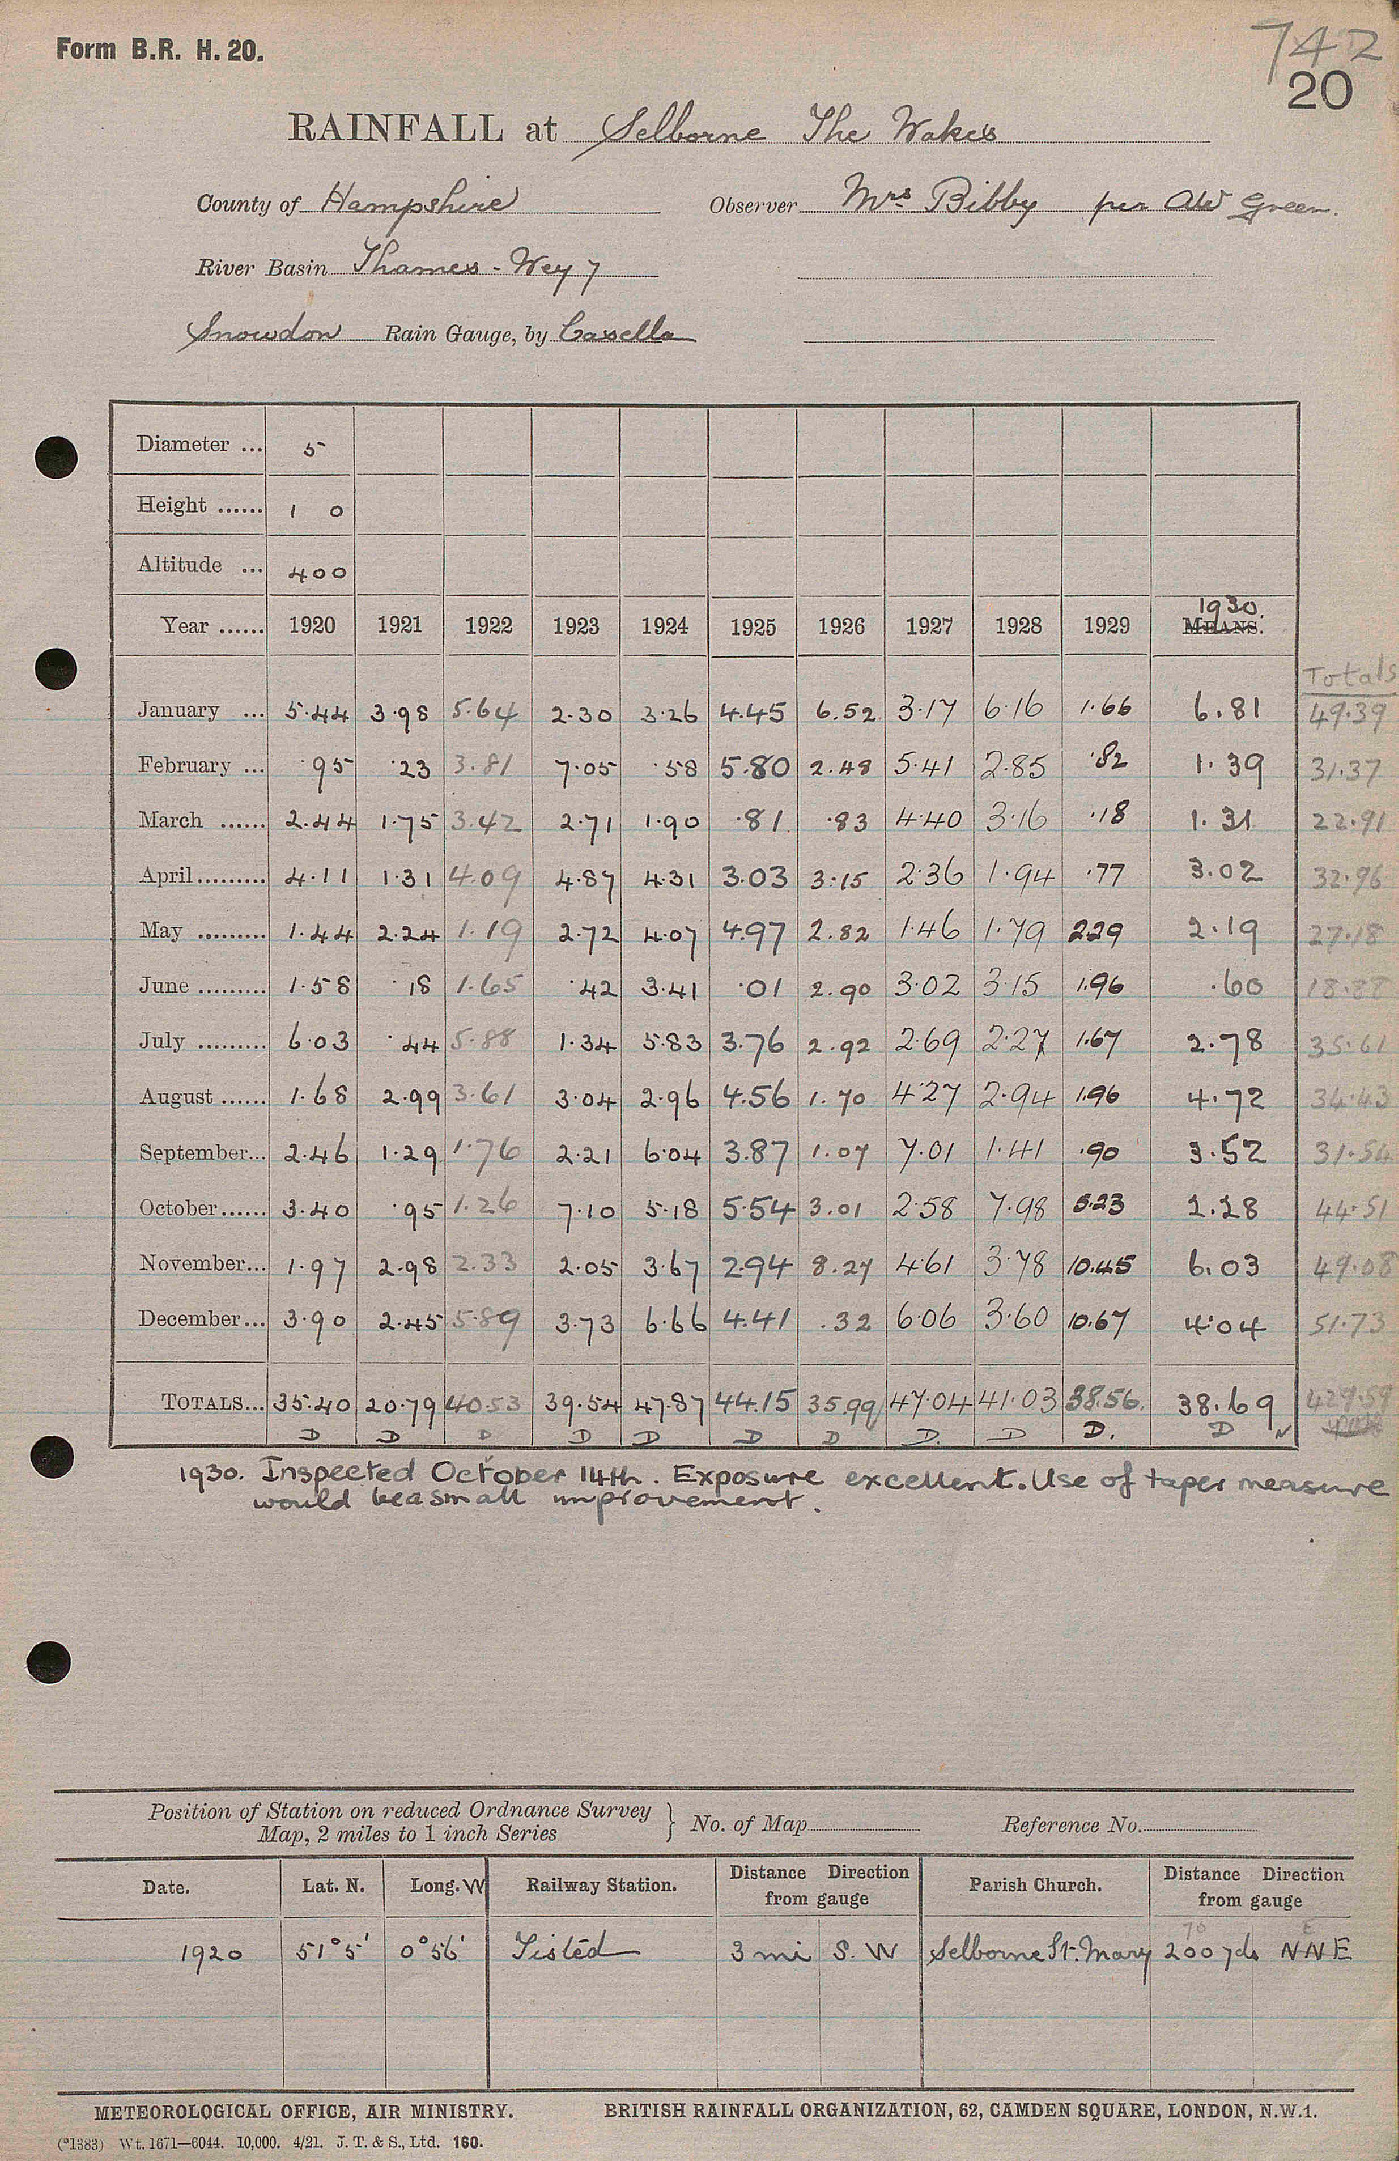 Form B.R. H. 20.
742
20
RAINFALL at Selborne The Wakes
County of Hampshire Observer Mrs Bibby per AW Green.
River Basin Thames - Wey 7
Snowdon Rain Gauge, by Casella
Diameter ... 5
Height ...... 1 0
Altitude ... 400
1930.
Year ...... 1920 1921 1922 1923 1924 1925 1926 1927 1928 1929 MEANS.
Totals
January ... 5.44 3.98 5.64 2.30 3.26 4.45 6.52 3.17 6.16 1.66 6.81 49.39
February ... .95 .23 3.81 7.05 .58 5.80 2.48 5.41 2.85 .82 1.39 31.37
March ...... 2.44 1.75 3.42 2.71 1.90 .81 .83 4.40 3.16 .18 1.31 22.91
April ......... 4.11 1.31 4.09 4.87 4.31 3.03 3.15 2.36 1.94 .77 3.02 32.96
May ......... 1.44 2.24 1.19 2.72 4.07 4.97 2.82 1.46 1.79 2.29 2.19 27.18
June ......... 1.58 .18 1.65 .42 3.41 .01 2.90 3.02 3.15 1.96 .60 18.88
July ......... 6.03 .44 5.88 1.34 5.83 3.76 2.92 2.69 2.27 1.67 2.78 35.61
August ...... 1.68 2.99 3.61 3.04 2.96 4.56 1.70 4.27 2.94 1.96 4.72 34.43
September... 2.46 1.29 1.76 2.21 6.04 3.87 1.07 7.01 1.41 .90 3.52 31.54
October...... 3.40 .95 1.26 7.10 5.18 5.54 3.01 2.58 7.98 5.23 2.28 44.51
November... 1.97 2.98 2.33 2.05 3.67 2.94 8.27 4.61 3.78 10.45 6.03 49.08
December... 3.90 2.45 5.89 3.73 6.66 4.41 .32 6.06 3.60 10.67 4.04 51.73
TOTALS... 35.40 20.79 40.53 39.54 47.87 44.15 35.99 47.04 41.03 38.56 38.69 429.59
D D D D D D D D. D D. D N
1930. Inspected October 14th. Exposure excellent. Use of taper measure
would be a small improvement.
Position of Station on reduced Ordnance Survey
Map, 2 miles to 1 inch Series
} No. of Map Reference No.
Date. Lat. N. Long. W Railway Station. Distance Direction from gauge Parish Church. Distance Direction from gauge
70 E
1920 51° 5' 0° 56' Tisted 3 mi S. W Selborne St. Mary 200 yds NNE
METEOROLOGICAL OFFICE, AIR MINISTRY. BRITISH RAINFALL ORGANIZATION, 62, CAMDEN SQUARE, LONDON, N.W.1.
(*1383) Wt. 1671—6044. 10,000. 4/21. J. T. & S., Ltd. 160.